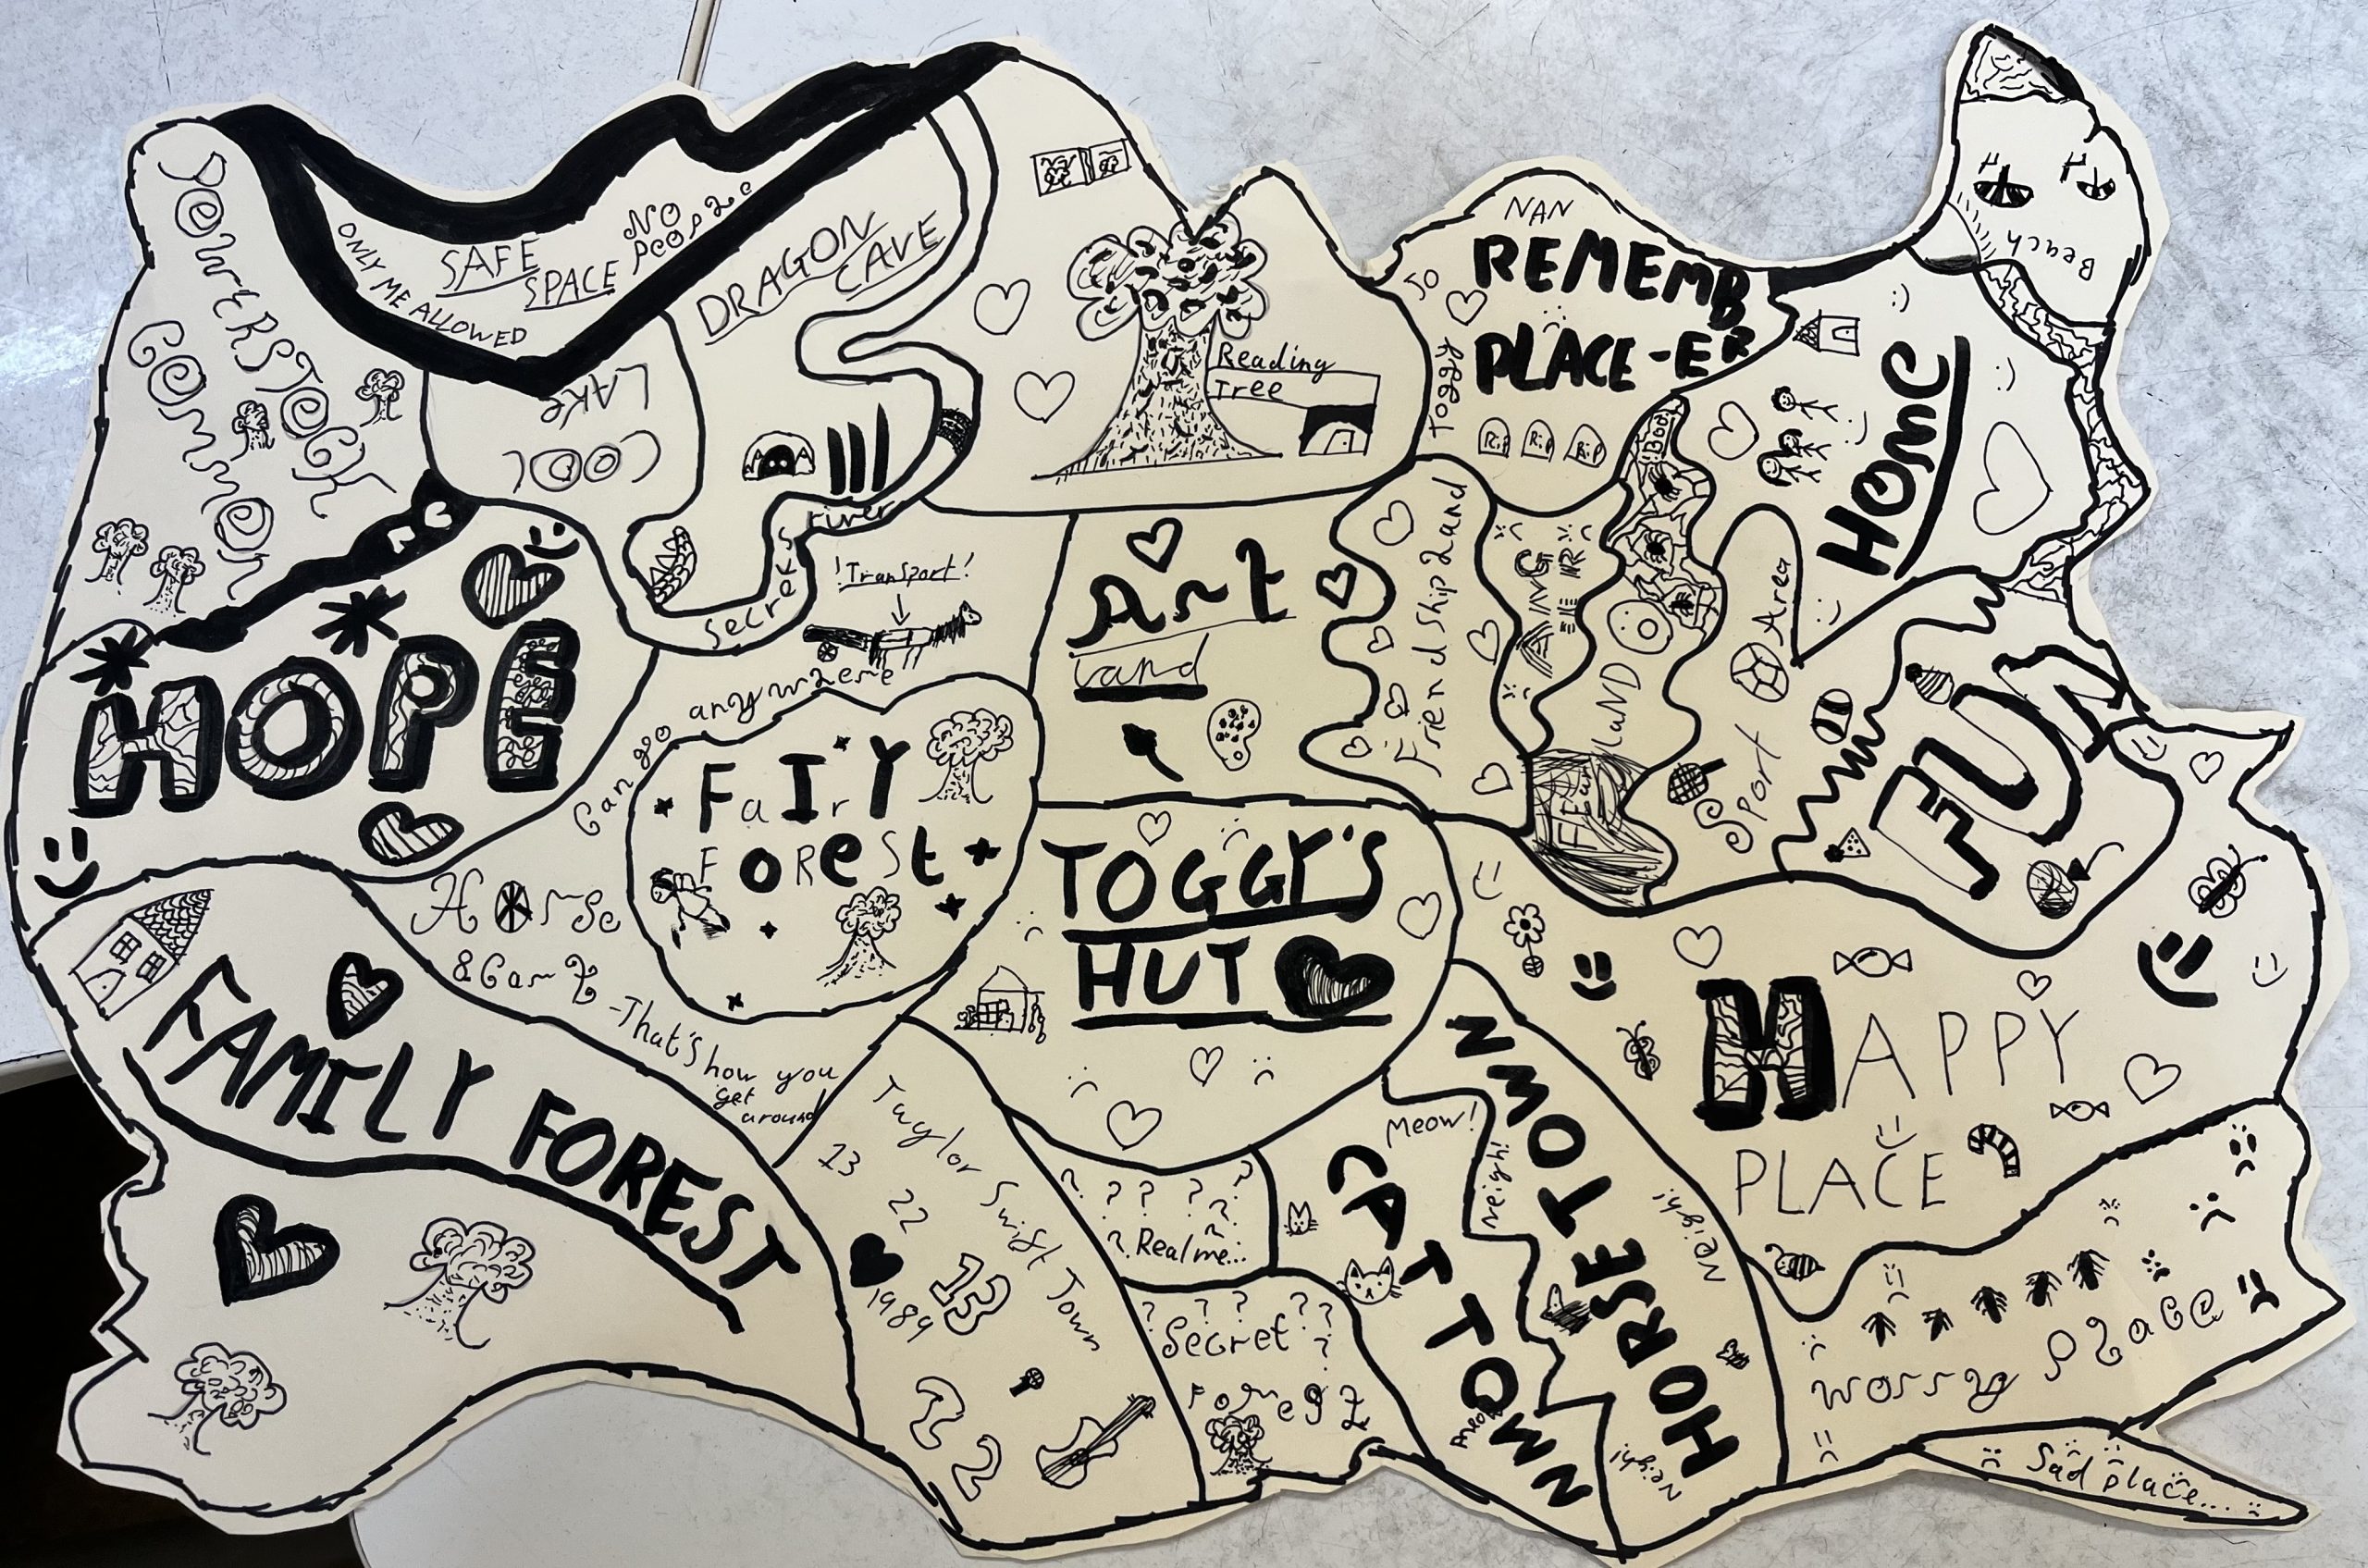 YOWERSTOCK
common
ONLY ME ALLOWED
SAFE
SPACE
NO
people
DRAGON
CAVE
COOL
LAKE
secret
river
Reading
Tree
NAN
JO
Toggy
REMEMB
PLACE-ER
Rip
Rip
Rip
Boo!
Beach
HOME
HOPE
!Transport!
Can go anywhere
Horse
& Cart
-That's how you
get
around
FaIrY
FoReSt
Art
land
Friendship land
Fear
LaND
Sport Area
FUN
TOGGY'S
HUT
FAMILY FOREST
Taylor Swift Town
13
22
1989
13
22
? ? ? ? ? ?
? Realme...
? ? ? ? ? ?
Secret
?
Meow!
CAT TOWN
meow
neigh!
HORSE TOWN
Neigh!
Neigh!
HAPPY
PLACE
worry place
Sad place....